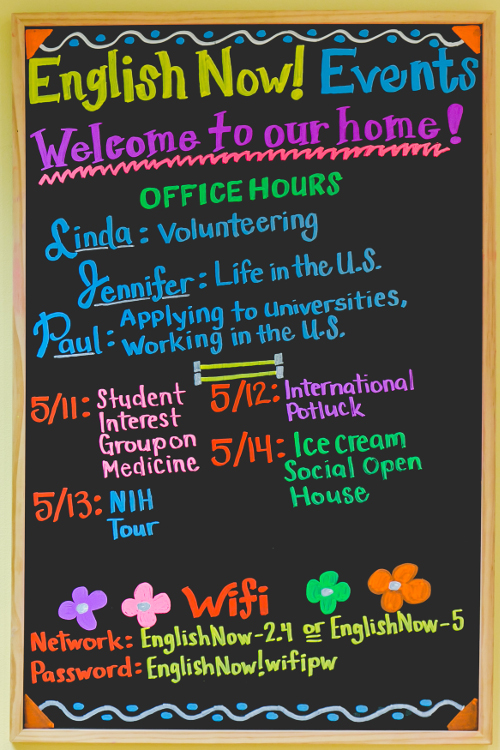 English Now! Events
Welcome to our home!
OFFICE HOURS
Linda: Volunteering
Jennifer: Life in the U.S.
Paul: Applying to Universities,
Working in the U.S.
5/11: Student
Interest
Group on
Medicine
5/12: International
Potluck
5/13: NIH
Tour
5/14: Ice cream
Social Open
House
Wifi
Network: EnglishNow-2.4 or EnglishNow-5
Password: EnglishNow!wifipw